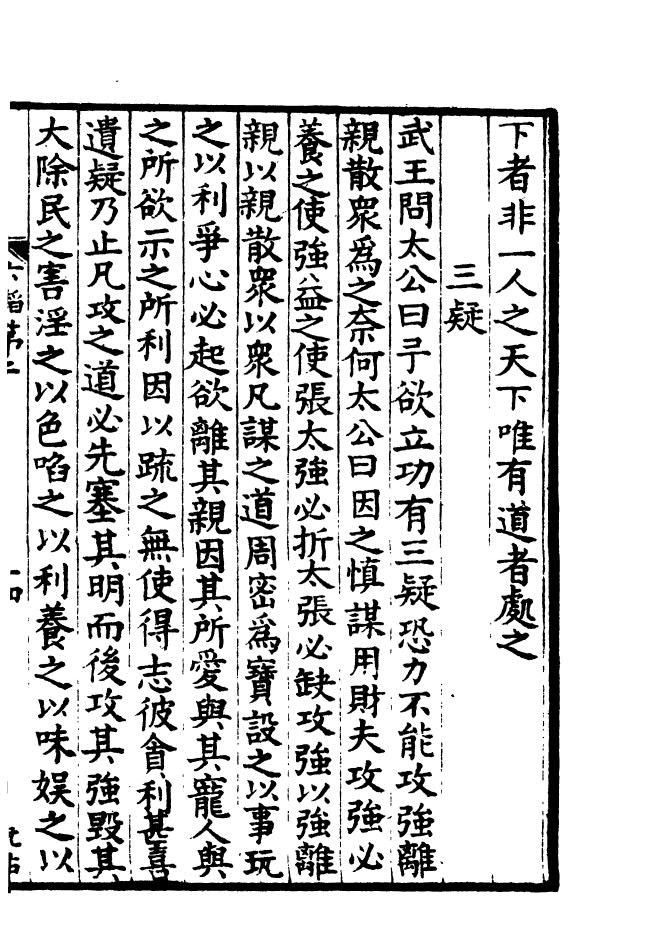 下者非一人之天下唯有道者處之
三疑
武王問太公曰予欲立功有三疑恐力不能攻強離
親散衆爲之奈何太公曰因之慎謀用財夫攻強必
養之使強益之使張太強必折太張必缺攻強以強離
親以親散衆以衆凡謀之道周密爲寶設之以事玩
之以利爭心必起欲離其親因其所愛與其寵人與
之所欲示之所利因以疏之無使得志彼貪利甚喜
遺疑乃止凡攻之道必先塞其明而後攻其強毀其
大除民之害淫之以色啗之以利養之以味娱之以
六韜第二